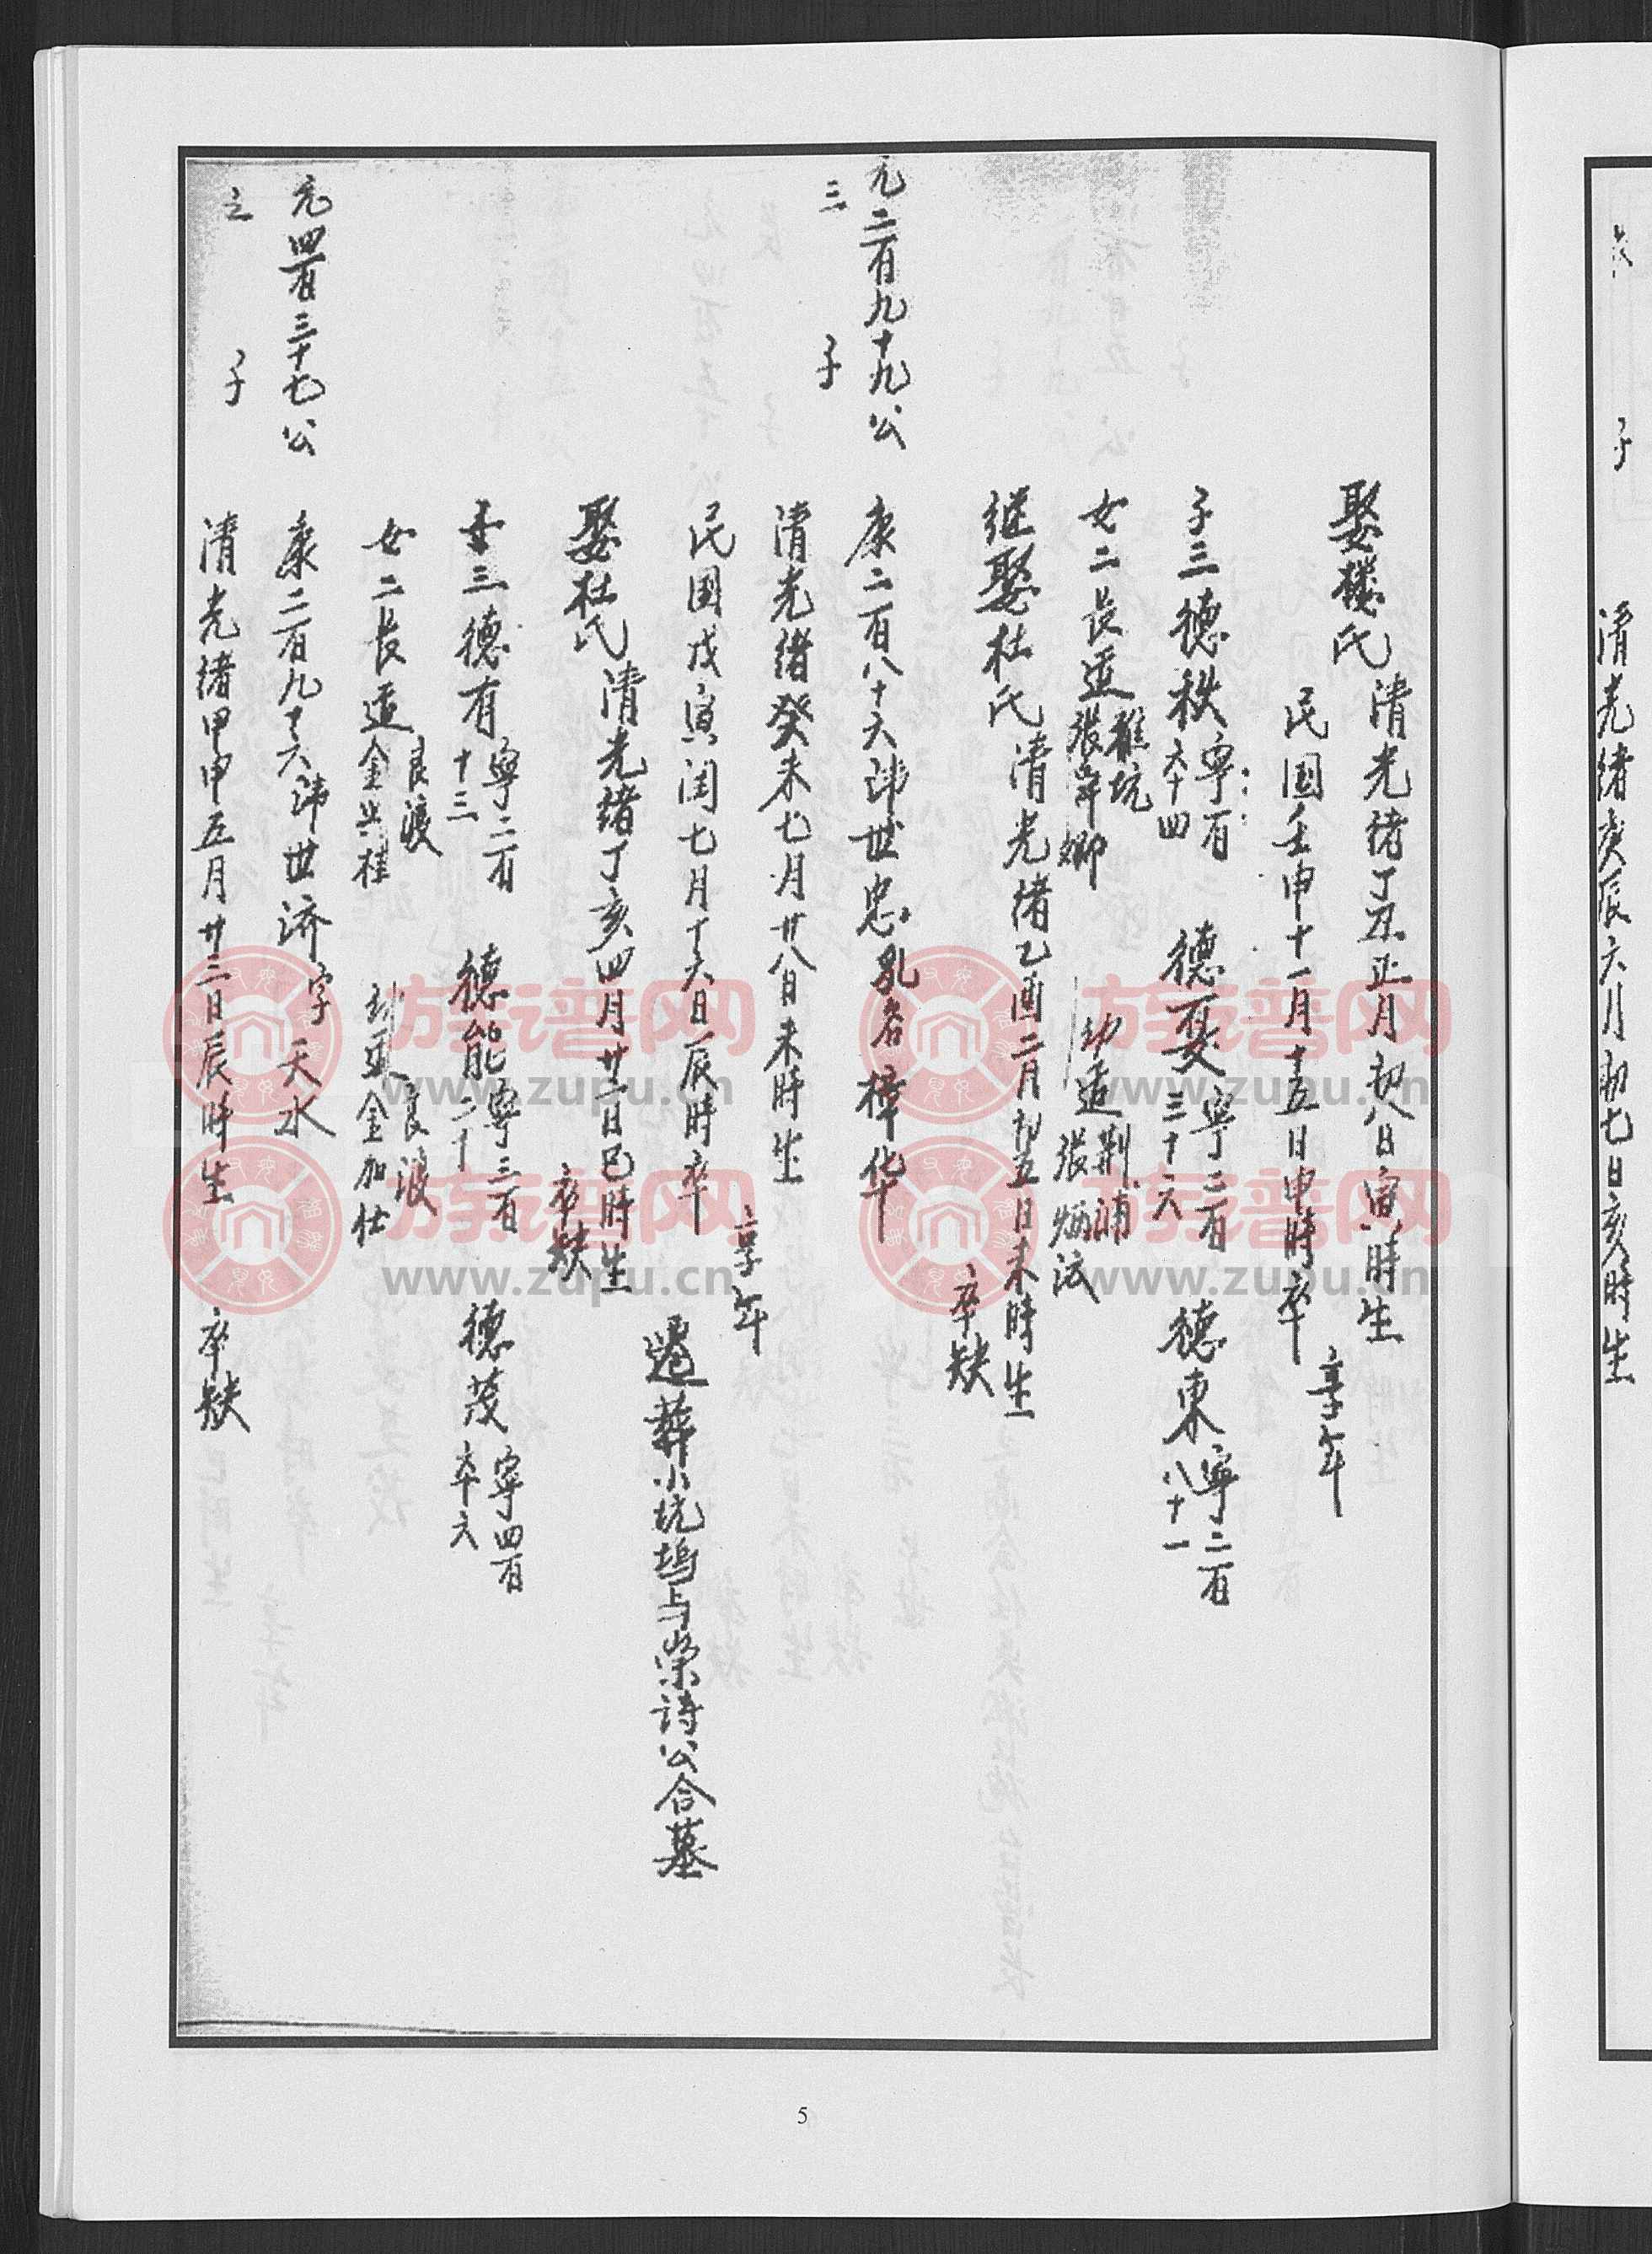 清光绪庚辰六月初七日亥時生
子
娶楼氏
清光绪丁丑正月初八日寅時生
民国壬申十一月十五日申時卒
享年
子三德秩
宁百
六十四
德戛
宁二百
三十六
德東
宁二百
八十一
女二長适
雅坑
張岸卿
幼适
荆浦
張炳法
继娶杜氏
清光绪乙酉二月初五日未時生
卒缺
元二百九十九公
三 子
康二百八十六讳世忠乳名樟华
清光绪癸未七月廿八日未時生
民国戊寅闰七月十六日辰時卒
享年
遷葬小坑塢与榮诗公合墓
娶杜氏
清光绪丁亥四月廿二日巳時生
卒缺
子三德有
宁二百
十三
德能
宁三百
二十
德茂
宁四百
六十六
女二長适
良渡
金兴桂
幼适
良渡
金加仕
元四百三十七公
之 子
康二百九十六讳世济字天水
清光绪甲申五月廿三日辰時生
卒缺
5
族谱网
www.zupu.cn
族谱网
www.zupu.cn
族谱网
www.zupu.cn
族谱网
www.zupu.cn